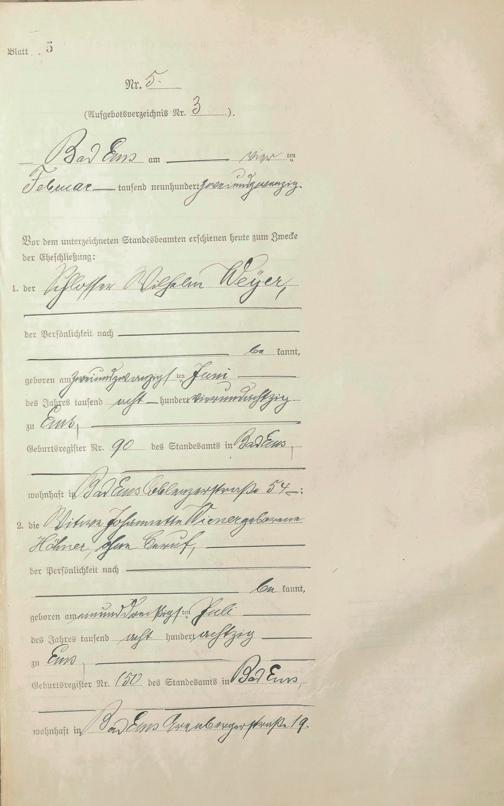 Blatt 5
Nr. 5.
(Aufgebotsverzeichnis Nr. 3).
Bad Ems am vier ten
Februar tausend neunhundert zweiundzwanzig.
Vor dem unterzeichneten Standesbeamten erschienen heute zum Zwecke
der Eheschließung:
1. der Schlosser Wilhelm Weyer,
der Persönlichkeit nach
be kannt,
geboren am zweiundzwanzigsten Juni
des Jahres tausend acht hundert vierundachtzig
zu Ems,
Geburtsregister Nr. 90 des Standesamts in Bad Ems,
wohnhaft in Bad Ems Coblenzerstraße 54;
2. die Witwe Johannette Wiener geborene
Höhner, ohne Beruf,
der Persönlichkeit nach
be kannt,
geboren am Juli
des Jahres tausend acht hundert achtzig
zu Ems,
Geburtsregister Nr. 150 des Standesamts in Bad Ems,
wohnhaft in Bad Ems Arenbergerstraße 19.